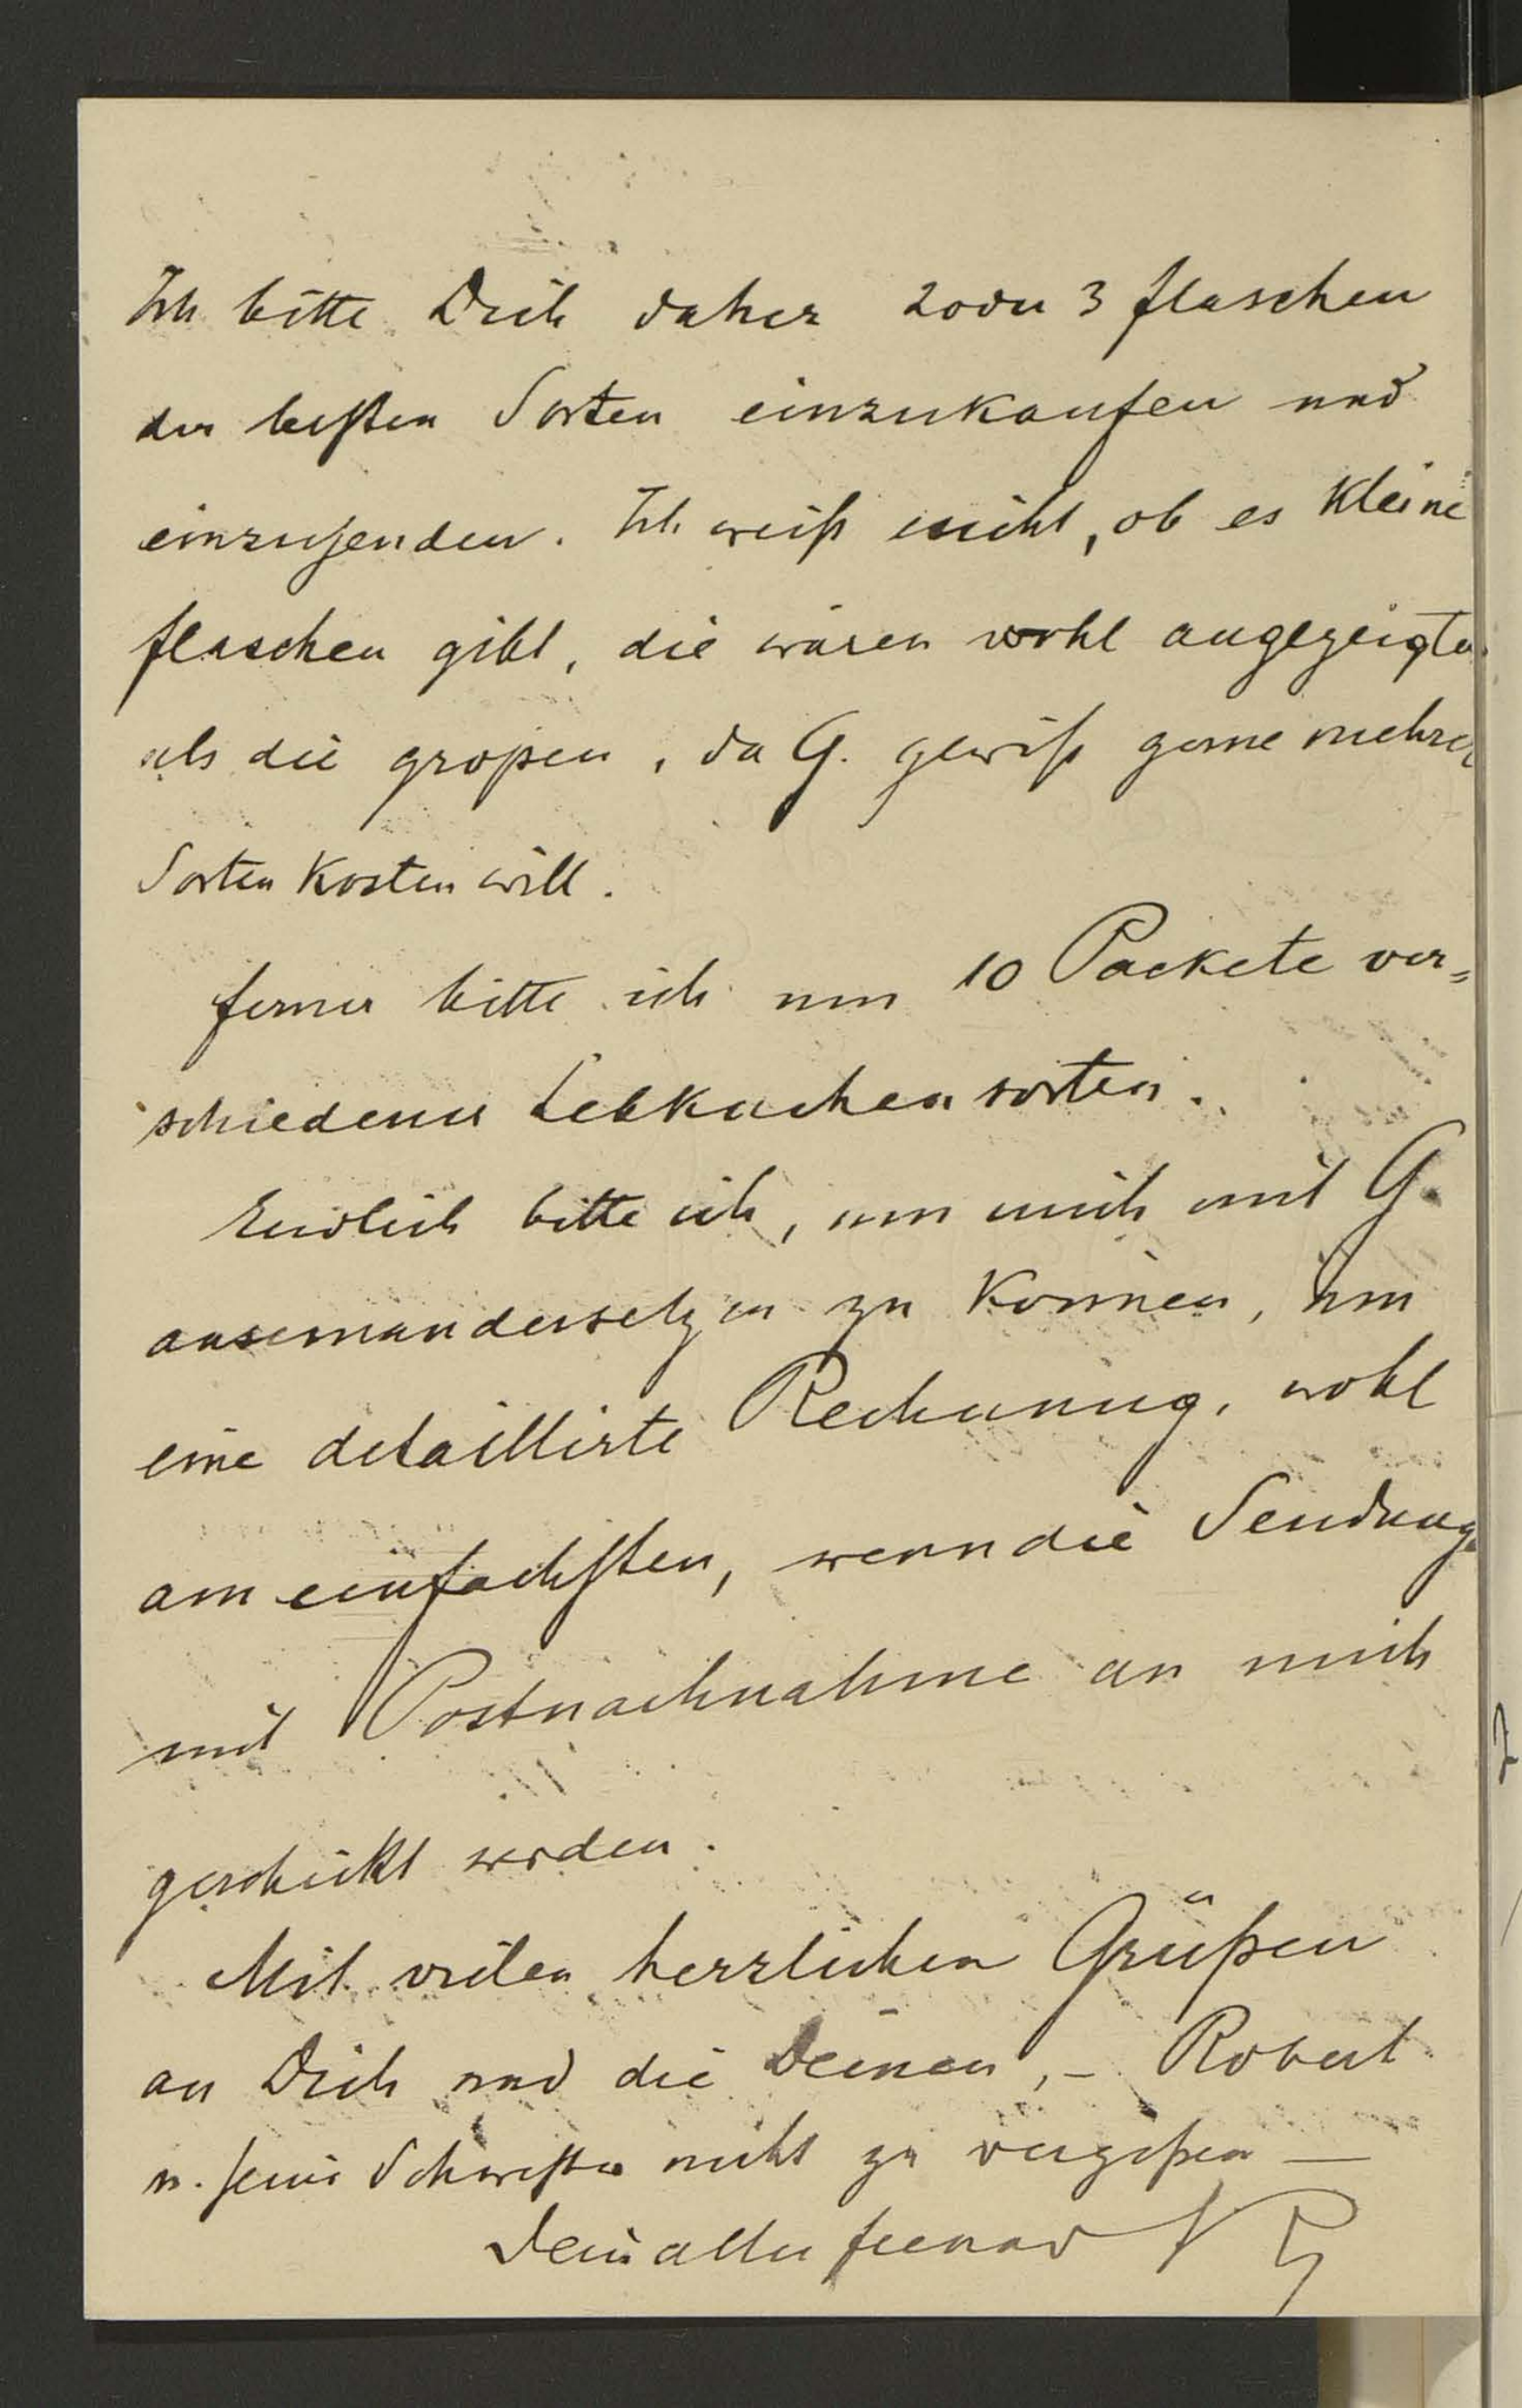 Ich bitte Dich daher 2 oder 3 Flaschen
der besten Sorten einzukaufen und
einzusenden. Ich weiß nicht, ob es kleine
Flaschen gibt, die wären wohl angezeigter
als die großen, da G. gewiß gerne mehrere
Sorten kosten will.
Ferner bitte ich um 10 Packete ver=
schiedener Lebkuchensorten.
Endlich bitte ich, um mich mit G.
auseinandersetzen zu können, um
eine detaillirte Rechnung, wohl
am einfachsten, wenn die Sendung
mit Postnachnahme an mich
geschickt werden.
Mit vielen herzlichen Grüßen
an Dich und die Deinen, – Robert
u. seine Schwester nicht zu vergeßen —
Dein alter Freund
2